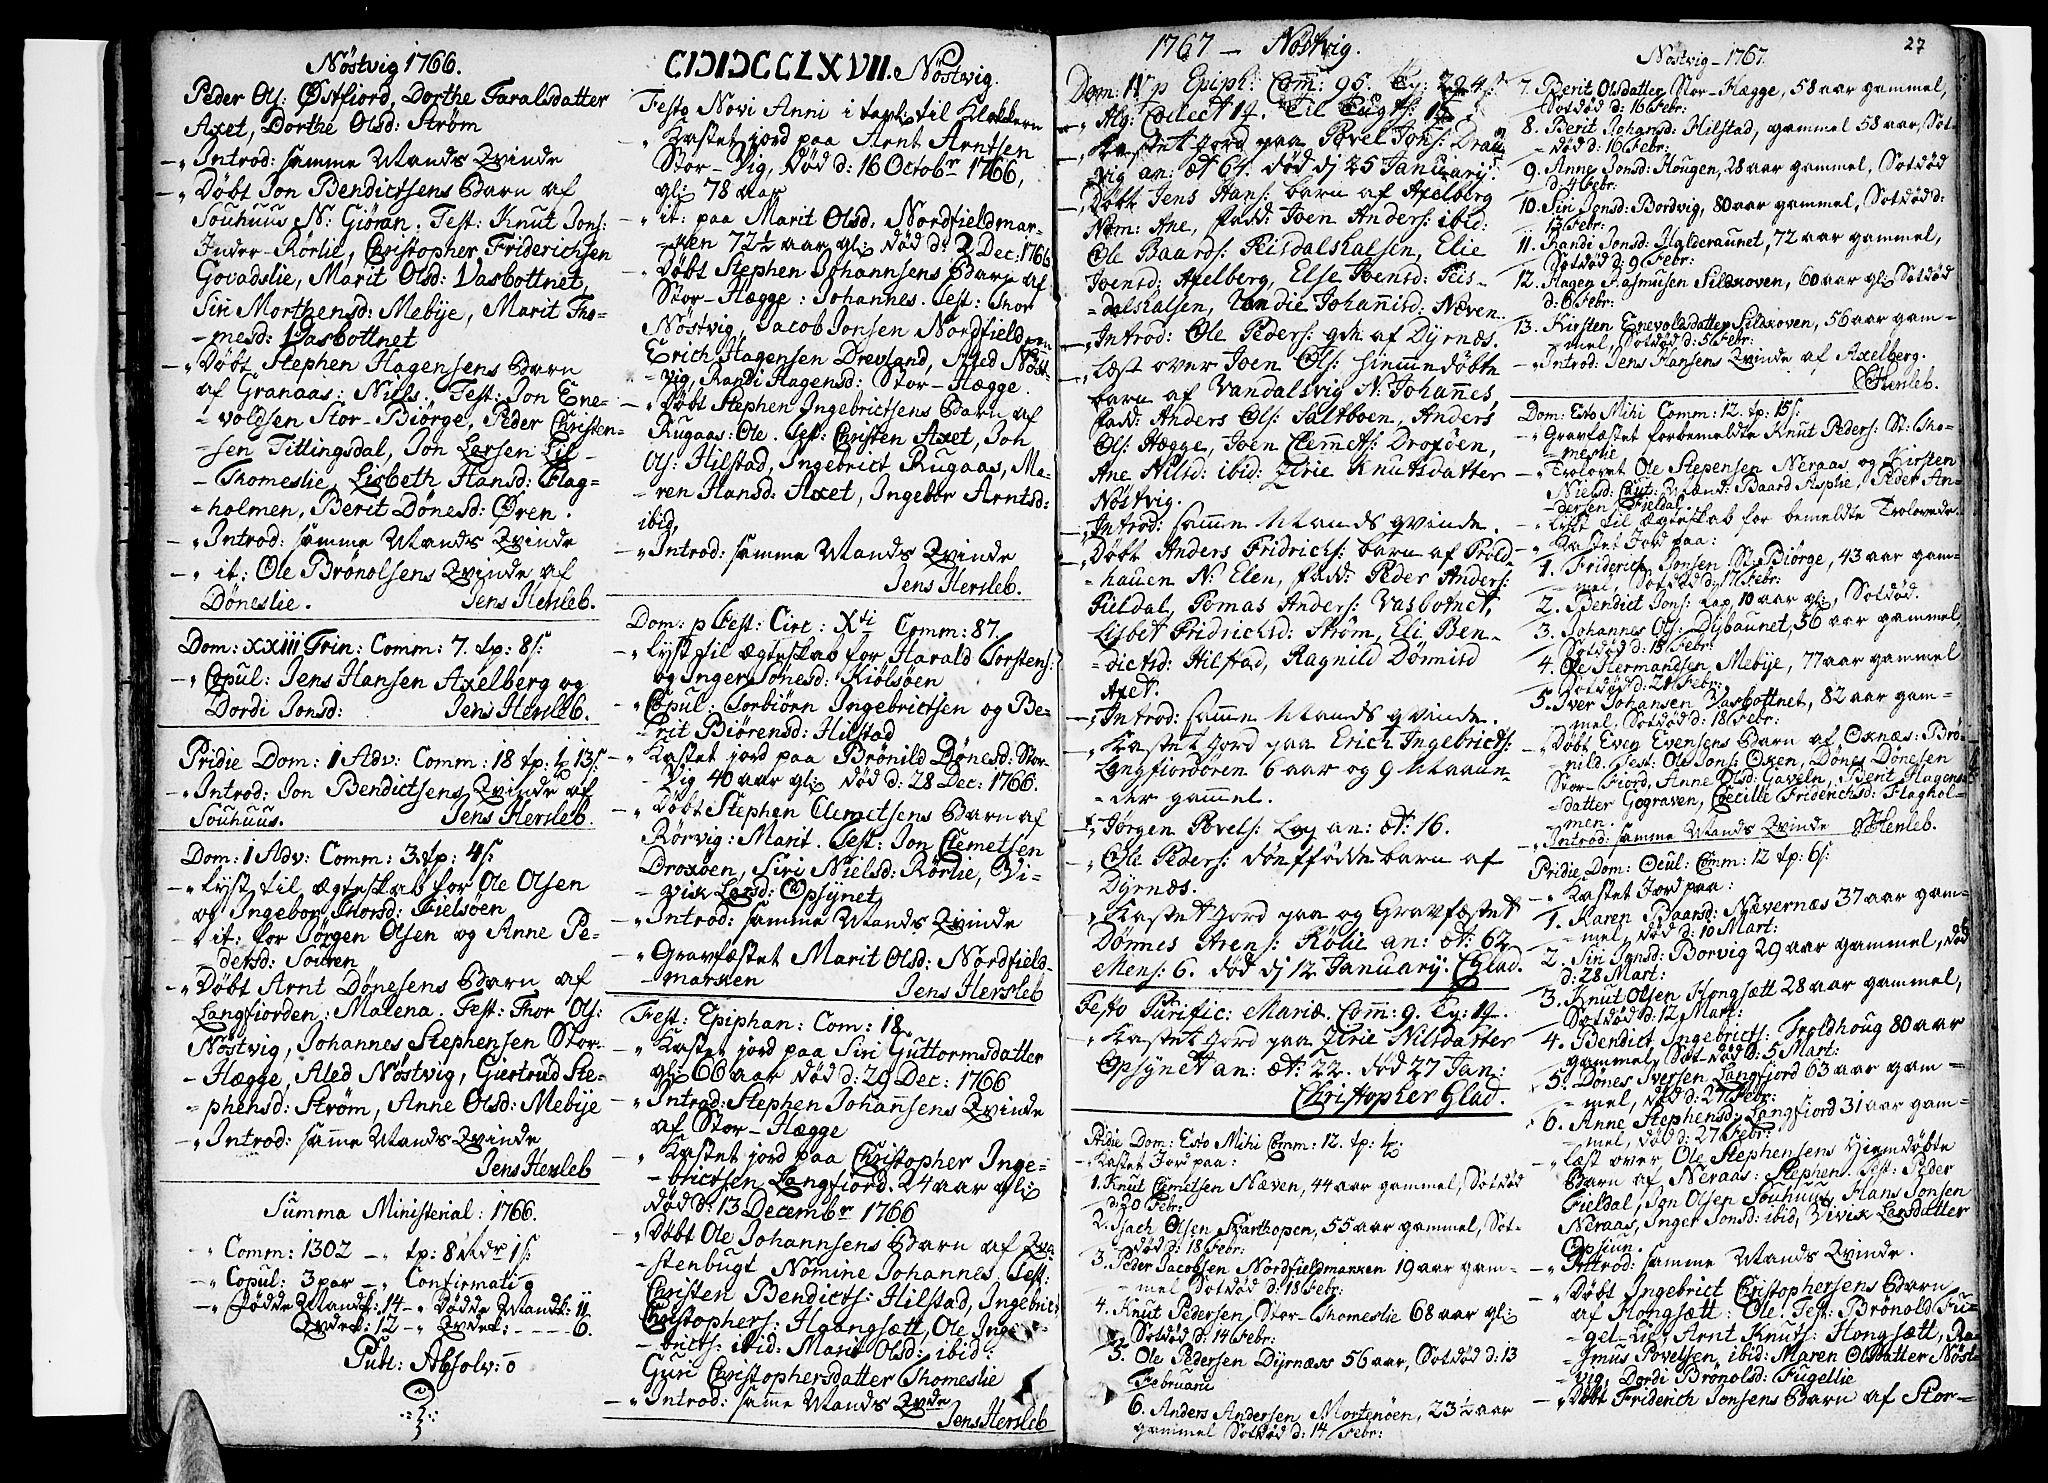 Nöstvig 1766.
Peder Ols: Østfiord, Dorthe Taralsdatter
Axet, Dorthe Olsd: Ström
-„ Introd: samme Mands Qvinde
-„ Döbt Jon Bendictsens Barn af
Souhuus N: Giöran. Test: Knut Jons:
Inder-Rörlie, Christopher Friderichsen
Govadslie, Marit Olsd: Vasbottnet,
Siri Morthensd: Mebÿe, Marit Tho-
-mesd: Vasbottnet
-„ Döbt Stephen Hagensens Barn
af Granaas: Niels. Test: Jon Ene-
voldsen Stor-Biörge, Peder Christen-
-sen Tittingsdal, Jon Larsen Lil-
-Thomeslie, Lisbeth Hansd: Flag-
=holmen, Berit Dönesd: Øren.
-„ Introd: samme Mands Qvinde
-„ it: Ole Brönolsens Qvinde af
Döneslie. Jens Hersleb.
Dom: XXIII Trin: Comm: 7. tp: 8 s:
-„ Copul: Jens Hansen Axelberg og
Dordi Jonsd: Jens Hersleb.
Pridie Dom: 1 Adv: Comm: 18 tp: 13 s.
-„ Introd: Jon Bendictsens Qvinde af
Souhuus. Jens Hersleb.
Dom: 1 Adv: Comm: 3. tp: 4 s:
-„ Lyst til ægteskab for Ole Olsen
og Ingebor Thorsd: Fielsöen
-„ it: for Jörgen Olsen og Anne Pe-
-dersd: Souren
-„ Döbt Arnt Dönesens Barn af
Langfiorden: Malena. Test: Thor Ols:
Nöstvig, Johannes Stephensen Stor-
-Hægge, Aled Nöstvig, Giertrud Ste-
=phensd: Ström, Anne Olsd: Mebÿe
-„ Introd: samme Mands Qvinde
Jens Hersleb
Summa Ministerial: 1766.
-„ Comm: 1302 -„ tp: 8 Rdr 1 s:
-„ Copul: 3 par -„ Confirmati 0
-„ Födde Mandk: 14 -„ Dödde Mandk: 11
Qvdek: 12 -„ Qvdek: ---- 6.
Publ: Absolv: 0
CIƆIƆCCLXVII. Nöstvig.
Festo Novi Anni i tavl: til Klokkern
-„ Kastet jord paa Arnt Arntsen
Stor-Vig, Död d: 16 Octobr 1766,
gl: 78 aar
-„ it: paa Marit Olsd. Nordfieldmar-
-ken 72½ aar gl: död d: 2 Dec: 1766
-„ Döbt Stephen Johannsens Barn af
Stor-Hægge: Johannes. Test: Thor
Nöstvig, Jacob Jonsen Nordfieldm:
Erich Hagensen Drevland, Aled Nöst-
-vig, Randi Hagensd: Stor-Hægge.
-„ Döbt Stephen Ingebrictsens Barn af
Rugaas: Ole. Test: Christen Axet, Joh
Ols: Hilstad, Ingebrict Rugaas, Ma-
-ren Hansd: Axet, Ingebor Arntsd:
ibid,
-„ Introd: samme Mands Qvinde
Jens Hersleb.
Dom: p Fest: Circ: Xti Comm: 87.
-„ Lyst til ægteskab for Harald Torstens:
og Inger Jonesd: Kiölsöen
-„ Copul: Torbiörn Ingebrictsen og Be-
-rit Biörensd: Hilstad
-„ Kastet jord paa Brönild Dönesd: Stor-
-Vig 40 aar gl: död d: 28 Dec: 1766.
-„ Döbt Stephen Clemetsens Barn af
Rörvig: Marit. Test: Jon Clemetsen
Droxöen, Siri Nielsd: Rörlie, Vi-
-vik Larsd: Opsynet,
-„ Introd: samme Mands Qvinde
-„ Gravfæstet Marit Olsd: Nordfield-
-marken Jens Hersleb
Fest: Epiphan: Com: 18.
-„ Kastet jord paa Siri Guttormsdatter
gl: 66 aar död d: 29 Dec: 1766
-„ Introd: Stephen Johannsens Qvinde
af Stor-Hægge
-„ Kastet jord paa Christopher Inge-
-brictsen Langfiord. 24 aar gl:
död d: 13 Decembr 1766
-„ Döbt Ole Johannsens Barn af Qva-
-stenbugt Nomine Johannes, Test:
Christen Bendicts: Hilstad, Ingebrict
Christophers: Haangsætt, Ole Inge-
-bricts: ibid: Marit Olsd: ibid:
Guri Christophersdatter Thomeslie
-„ Introd: samme Mands Qvinde
Jens Hersleb
1767 - Nöstvig.
Dom: IV p Epiph: Com: 95.
Kastet Jord paa Povel Jons: Drau
vig an: æt 64. död d 25 Januarij.
-„ Döbt Jens Hans: barn af Axelberg
Nom: Ane, fadd: Joen Anders: ibid:
Ole Baards: Reisdalshalsen, Elie
Joensd: Axelberg, Else Joensd: Reis-
-dalshalsen, Vandie Johannisd: Næven.
-„ Introd: Ole Peders: qde af Dyrnæs.
-„ Læst over Joen Ols: hiemmedöbte
barn af Vandalsvig N: Johannes,
fadd: Anders Ols: Saltboen, Anders
Ols: Hogge, Joen Clemets: Droxöen,
Ane Nilsd: ibid: Zirie Knutsdatter
Nöstvig.
-„ Introd: samme Mands qvinde.
-„ Döbt Anders Fridrichs: barn af Prold-
-hauen N: Elen, fadd: Peder Anders:
Fieldal, Tomas Anders: Vasbotnet,
Lisbet Fridrichsd: Ström, Eli Ben-
-dictsd: Hilstad, Ragnild Dönnisd
Axet.
-„ Introd: samme Mands qvinde.
-„ Kastet Jord paa Erich Ingebricts:
Langfiordören 6 aar og 9 Maan-
-der gammel.
-„ Jörgen Povels: Log an: æt: 16.
-„ Ole Peders: dönffödde barn af
Dyrnæs.
-„ Kastet Jord paa og Gravfæstet
Dönnes Arens: Rölie an: æt: 62
Mens: 6. död d 12 January. CGlad.
Festo Purific: Mariæ. Com: 9.
-„ Kastet Jord paa Zirie Nilsdatter
Opsynet an: æt: 22. död 27 Jan:
Christopher Glad.
Pridie Dom: Esto Mihi Comm: 12. tp:
-„ Kastet Jord paa:
1. Knut Clemetsen Næven, 44 aar gammel, Sotdöd
d: 20 Febr:
2. Isach Olsen Skarthopen, 55 aar gammel, Sot-
död d: 18 Febr:
3. Peder Jacobsen Nordfieldmarken 19 aar gam-
-mel Sotdöd d: 18 Febr:
4. Knut Pedersen, Stor-Thomeslie 68 aar gl:
Sotdöd d: 14 Febr:
5. Ole Pedersen Dyrnæs 56 aar, Sotdöd d: 13
Februarii
6. Anders Andersen Mortenöen, 23½ aar
gammel Sotdöd d: 14 Febr:
Nöstvig-1767.
27
7. Berit Olsdatter Stor-Hægge, 58 aar gammel,
Sotdöd d: 16 Febr:
8. Berit Johansd: Hilstad, gammel 58 aar, Sot-
-död d: 16 Febr:
9. Anne Jonsd: Hougen, 28 aar gammel, Sotdöd
d: 4 Febr:
10. Siri Jonsd: Bordvig, 80 aar gammel, Sotdöd d:
13 Febr:
11. Randi Jonsd: Halderaunet, 72 aar gammel,
Sotdöd d: 9 Febr:
12. Hagen Rasmusen Sildxoven, 60 aar gl: Sotdöd
d: 6 Febr:
13. Kirsten Enevoldsdatter Sildxoven, 56 aar gam-
mel, Sotdöd d: 5 Febr:
-„ Introd: Jens Hansens Qvinde af Axelberg.
JHersleb.
Dom: Esto Mihi Comm: 12. tp: 15 s:
-„ Gravfæstet forbemeldte Knut Peders: St: Tho-
-meslie
-„ Trolovet Ole Stepensen Neraas og Kirsten
Nielsd: Caut: Baard Asphe, Peder An-
dersen Fieldal.
-„ Lyst til ægteskab for bemeldte Trolovede.
-„ Kastet Jord paa:
1. Friderich Jonsen St: Biörge, 43 aar gam-
mel, Sotdöd d: 17 Febr:
2. Bendict Jons: Lap, 10 aar gl:, Sotdöd.
3. Johannes Ols: Dybaunet, 56 aar gammel,
Sotdöd d: 18 Febr:
4. Ole Hermandsen Mebÿe, 77 aar gammel
Sotdöd d: 21 Febr:
5. Iver Johansen Vasbottnet, 82 aar gam-
mel. Sotdöd d: 18 Febr:
-„ Döbt Even Evensens Barn af Oxnæs: Brö-
nild. Test: Ole Jons: Oxen, Dönes Dönesen
Stor-Fiord, Anne Olsd: Gaveln, Berit Hagens
-datter Gograven, Cecille Friderichsd: Flaghol-
men.
-„ Introd: samme Mands Qvinde JHersleb.
Pridie Dom: Ocul: Comm: 12 tp: 6 s:
-„ Kastet Jord paa:
1. Karen Baarsd: Nævernæs 37 aar gam-
mel, död d: 10 Mart:
2. Siri Jonsd: Borvig 29 aar gammel, död
d: 28 Mart:
3. Knut Olsen Hongsætt 28 aar gammel,
Sotdöd d: 12 Mart:
4. Bendict Ingebricts: Troldhoug 80 aar
gammel, Sotdöd d: 5 Mart:
5. Dönes Iversen Langfjord 63 aar gam-
mel, död d: 27 Febr:
6. Anne Stephensd: Langfjord 31 aar gam-
mel, död d: 27 Febr:
-„ Læst over Ole Stephensens Hiemdöbte
Barn af Neraas: Stephen. Test: Peder
Fieldal, Jon Olsen Souhuus, Hans Jonsen
Neraas, Inger Jonsd: ibid, Vivik Larsdatter
Opsiun.
-„ Introd: samme Mands Qvinde.
-„ Döbt Ingebrict Christophersens Barn
af Hongsætt: Ole, Test: Brönold Fu-
gel-Lie, Arnt Knuts: Hongsætt, Ra-
smus Povelsen, ibid: Maren Olsdatter Nöst-
vig, Dordi Brönolsd: Fugellie
-„ Döbt Friderich Jonsens Barn af Stor-